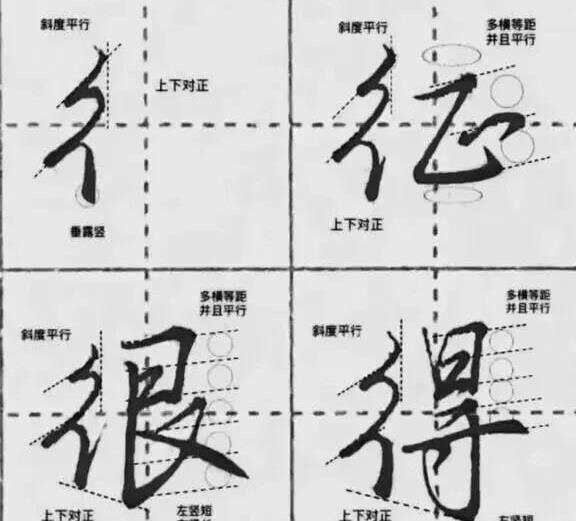 斜度平行
上下对正
彳
垂露竖
斜度平行
多横等距
并且平行
征
上下对正
斜度平行
多横等距
并且平行
很
上下对正
左竖短
斜度平行
多横等距
并且平行
得
上下对正
左竖短